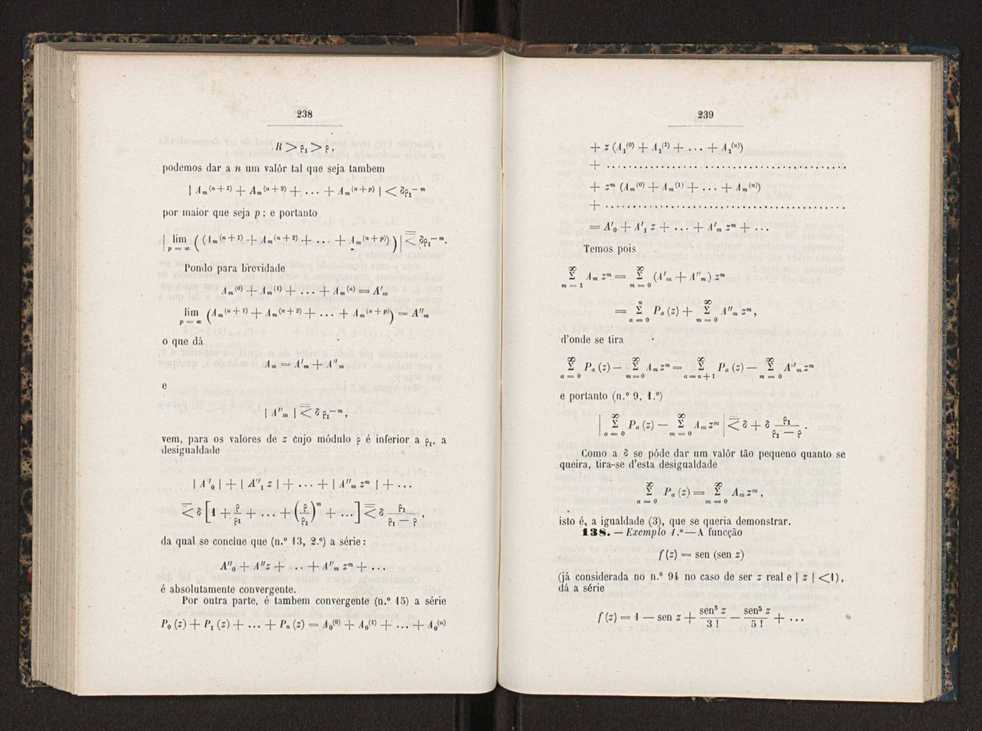 238
R > ρ₁ > ρ,
podemos dar a n um valôr tal que seja tambem
| Aₘ⁽ⁿ⁺¹⁾ + Aₘ⁽ⁿ⁺²⁾ + ... + Aₘ⁽ⁿ⁺ᵖ⁾ | < δρ₁⁻ᵐ
por maior que seja p; e portanto
| lim_{p=∞} ( (Aₘ⁽ⁿ⁺¹⁾ + Aₘ⁽ⁿ⁺²⁾ + ... + Aₘ⁽ⁿ⁺ᵖ⁾) ) | ≦ δρ₁⁻ᵐ.
Pondo para brevidade
Aₘ⁽⁰⁾ + Aₘ⁽¹⁾ + ... + Aₘ⁽ⁿ⁾ = A'ₘ
lim_{p=∞} (Aₘ⁽ⁿ⁺¹⁾ + Aₘ⁽ⁿ⁺²⁾ + ... + Aₘ⁽ⁿ⁺ᵖ⁾) = A''ₘ
o que dá
Aₘ = A'ₘ + A''ₘ
e
| A''ₘ | ≦ δρ₁⁻ᵐ,
vem, para os valores de z cujo módulo ρ é inferior a ρ₁, a
desigualdade
| A''₀ | + | A''₁ z | + ... + | A''ₘ zᵐ | + ...
≦ δ [ 1 + ρ/ρ₁ + ... + (ρ/ρ₁)ᵐ + ... ] ≦ δ ρ₁/(ρ₁ − ρ),
da qual se conclue que (n.º 13, 2.º) a série:
A''₀ + A''z + ... + A''ₘ zᵐ + ...
é absolutamente convergente.
Por outra parte, é tambem convergente (n.º 15) a série
P₀ (z) + P₁ (z) + ... + Pₙ (z) = A₀⁽⁰⁾ + A₀⁽¹⁾ + ... + A₀⁽ⁿ⁾
239
+ z (A₁⁽⁰⁾ + A₁⁽¹⁾ + ... + A₁⁽ⁿ⁾)
+ ........................................
+ zᵐ (Aₘ⁽⁰⁾ + Aₘ⁽¹⁾ + ... + Aₘ⁽ⁿ⁾)
+ ........................................
= A'₀ + A'₁ z + ... + A'ₘ zᵐ + ...
Temos pois
Σ_{m=1}^{∞} Aₘ zᵐ = Σ_{m=0}^{∞} (A'ₘ + A''ₘ) zᵐ
= Σ_{a=0}^{n} Pₐ (z) + Σ_{m=0}^{∞} A''ₘ zᵐ,
d'onde se tira
Σ_{a=0}^{∞} Pₐ (z) − Σ_{m=0}^{∞} Aₘ zᵐ = Σ_{a=n+1}^{∞} Pₐ (z) − Σ_{m=0}^{∞} A''ₘ zᵐ
e portanto (n.º 9, 1.º)
| Σ_{a=0}^{∞} Pₐ (z) − Σ_{m=0}^{∞} Aₘ zᵐ | ≦ δ + δ ρ₁/(ρ₁ − ρ).
Como a δ se póde dar um valôr tão pequeno quanto se
queira, tira-se d'esta desigualdade
Σ_{a=0}^{∞} Pₐ (z) = Σ_{m=0}^{∞} Aₘ zᵐ,
isto é, a igualdade (3), que se queria demonstrar.
138. — Exemplo 1.º — A funcção
f (z) = sen (sen z)
(já considerada no n.º 94 no caso de ser z real e | z | < 1),
dá a série
f (z) = 1 − sen z + sen³ z/3! − sen⁵ z/5! + ...